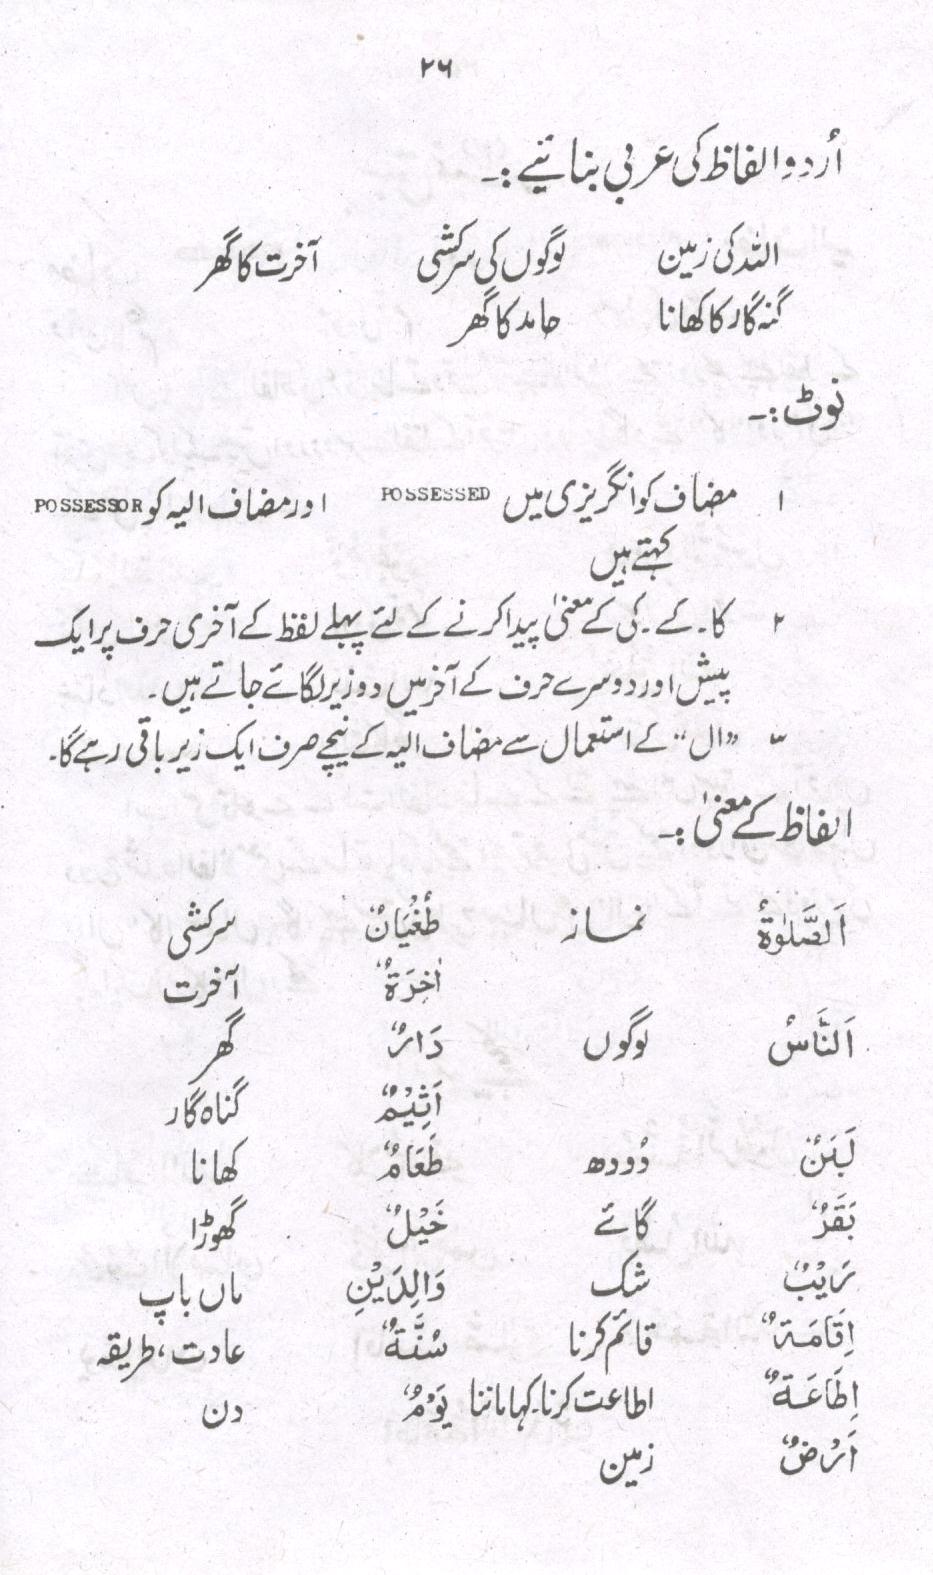 ۲۶
اُردو الفاظ کی عربی بنائیے :۔
اللہ کی زمین لوگوں کی سرکشی آخرت کا گھر
گنہ گار کا کھانا حامد کا گھر
نوٹ :۔
۱ مضاف کو انگریزی میں POSSESSED اور مضاف الیہ کو POSSESSOR
کہتے ہیں
۲ کا۔ کے۔ کی کے معنیٰ پیدا کرنے کے لئے پہلے لفظ کے آخری حرف پر ایک
پیش اور دوسرے حرف کے آخر میں دو زیر لگائے جاتے ہیں۔
۳ "ال" کے استعمال سے مضاف الیہ کے نیچے صرف ایک زیر باقی رہے گا۔
الفاظ کے معنیٰ :۔
اَلصَّلٰوةُ نماز طُغْيَانٌ سرکشی
اٰخِرَةٌ آخرت
اَلنَّاسُ لوگوں دَارٌ گھر
اَثِيْمٌ گناہ گار
لَبَنٌ دُودھ طَعَامٌ کھانا
بَقَرٌ گائے خَيْلٌ گھوڑا
رَيْبٌ شک وَالِدَيْنِ ماں باپ
اِقَامَةٌ قائم کرنا سُنَّةٌ عادت، طریقہ
اِطَاعَةٌ اطاعت کرنا۔ کہا ماننا يَوْمٌ دن
اَرْضٌ زمین